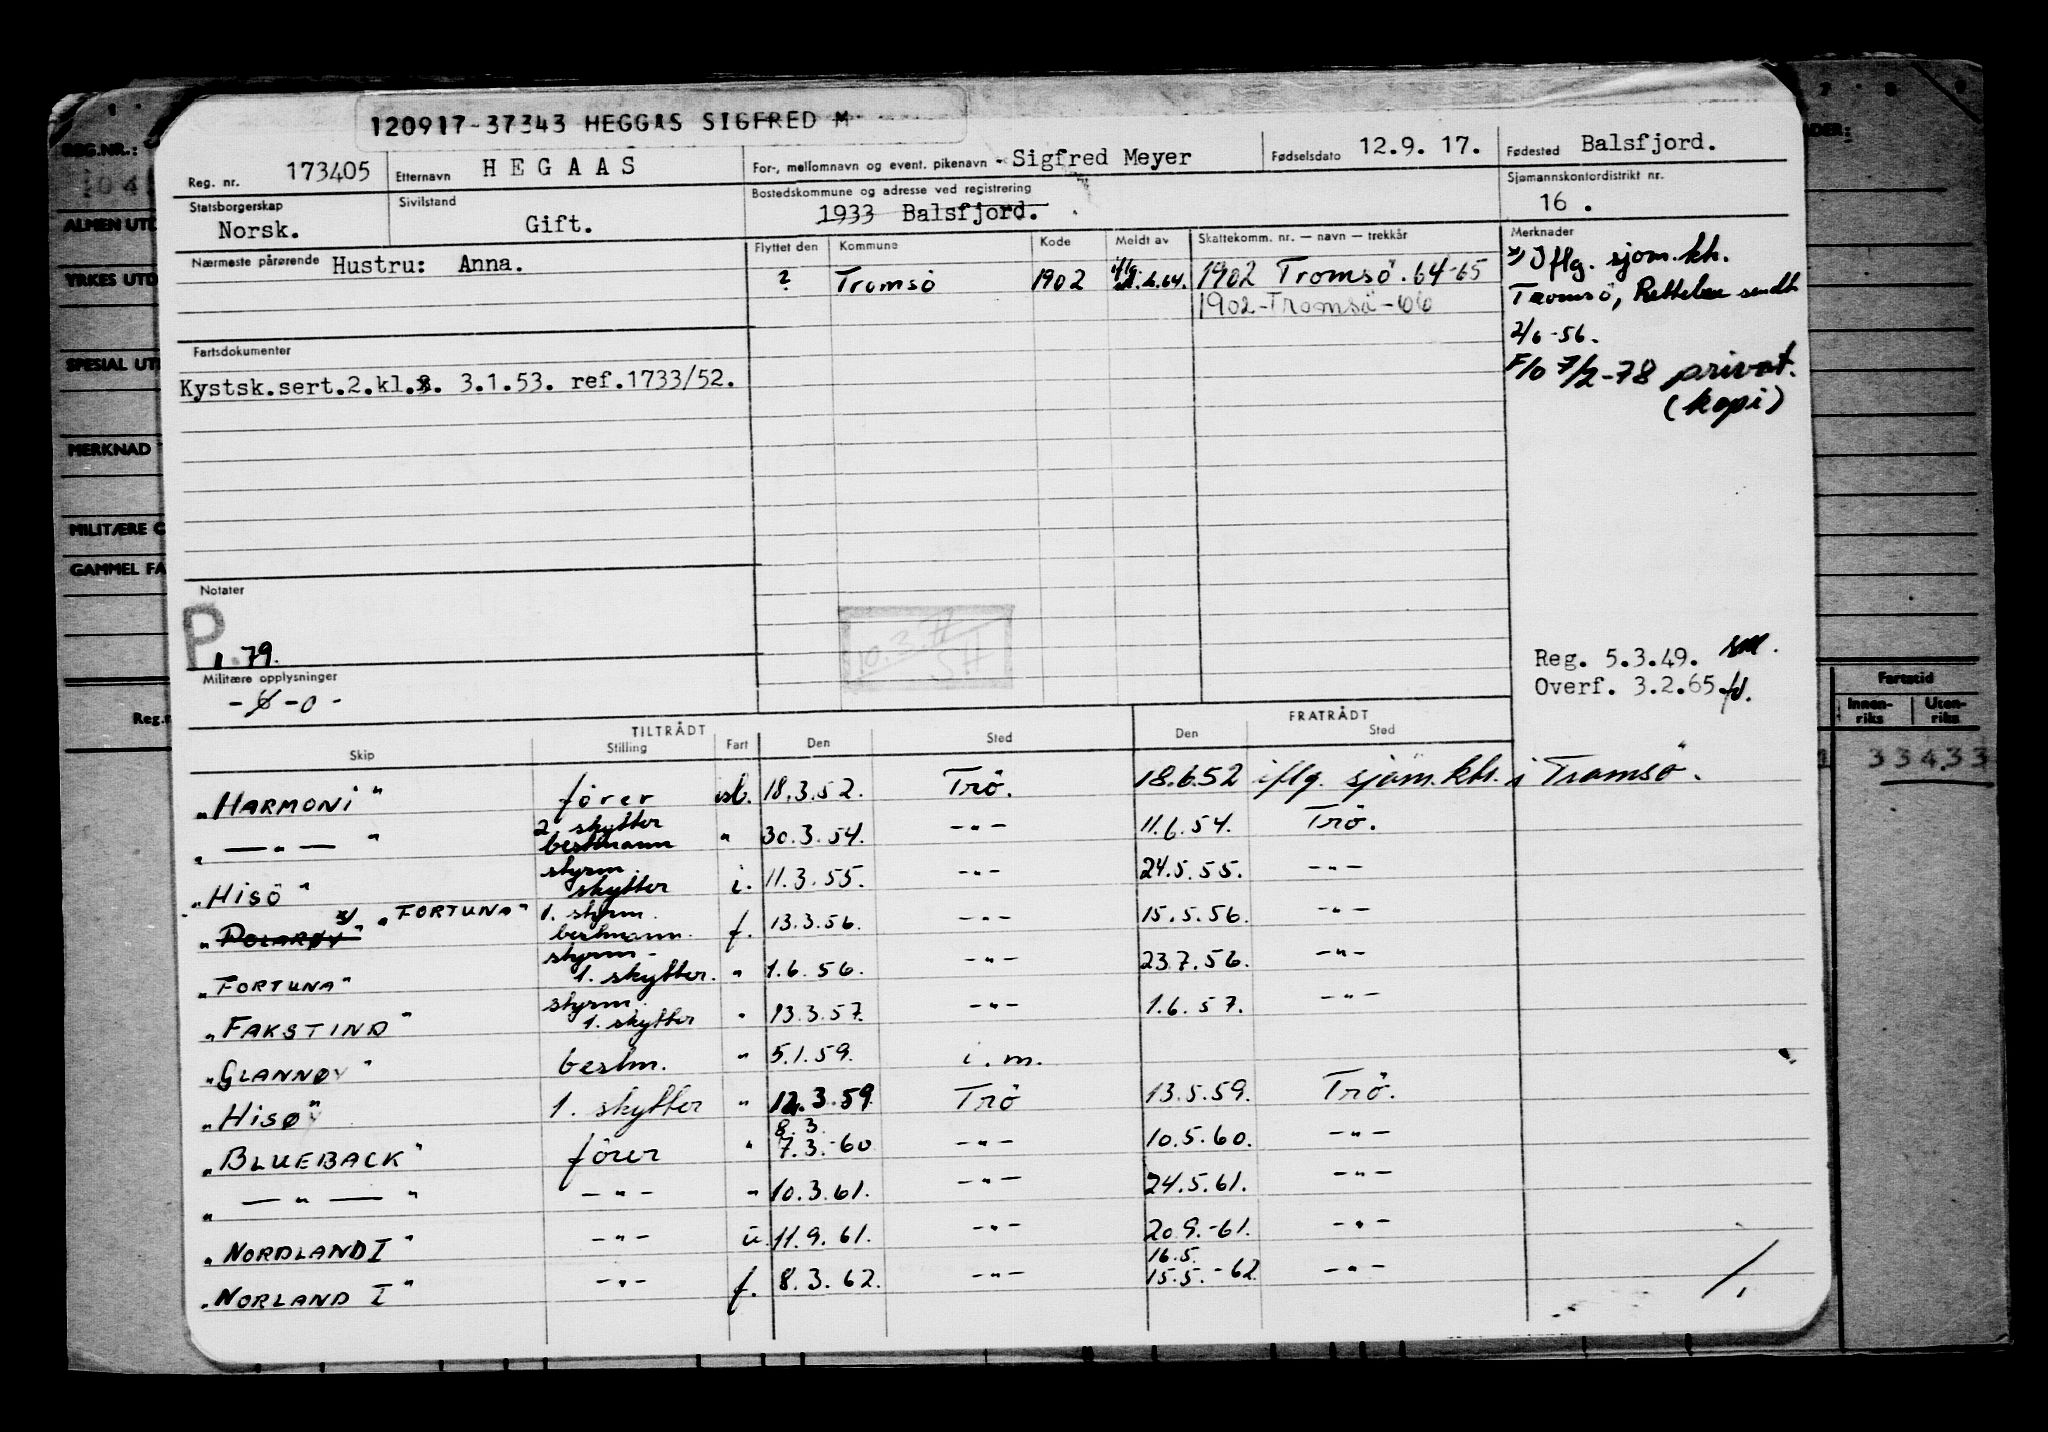 120917-37343 HEGGAS SIGFRED M
Reg. nr. 173405 Etternavn HEGAAS For-, mellomnavn og event. pikenavn Sigfred Meyer Fødselsdato 12.9. 17. Fødested Balsfjord.
Statsborgerskap Norsk. Sivilstand Gift. Bostedskommune og adresse ved registrering 1933 Balsfjord. Sjømannskontordistrikt nr. 16 .
Nærmeste pårørende Hustru: Anna.
Flyttet den Kommune Kode Meldt av Skattekomm. nr. — navn — trekkår Merknader
? Tromsö 1902 1902 Tromsö . 64-65
1902-Tromsö-66
x) Iflg. sjøm.kh.
Tromsö, Rettelse sendt
2/6-56.
F/o 7/2-78 privat.
(kopi)
Fartsdokumenter
Kystsk.sert.2.kl. 3.1.53. ref.1733/52.
Notater
P
1.79.
Militære opplysninger
-0-
Reg. 5.3.49.
Overf. 3.2.65
TILTRÅDT FRATRÅDT
Skip Stilling Fart Den Sted Den Sted
"HARMONI" förer 18.3.52. Trö. 18.6.52 iflg. sjöm.kh. i Tromsö.
" — " — " 2. skytter bestmann " 30.3.54. — " — 11.6.54. Trö.
"HISÖ" styrm. skytter i. 11.3.55. — " — 24.5.55. — " —
"POLARØY" x) "FORTUNA" 1. styrm. bestmann. f. 13.3.56. — " — 15.5.56. — " —
"FORTUNA" styrm- 1. skytter. " 1.6.56. — " — 23.7.56. — " —
"FAKSTIND" styrm. 1. skytter " 13.3.57. — " — 1.6.57. — " —
"GLANNØY" bestm. " 5.1.59. i.m.
"HISØY" 1. skytter " 12.3.59. Trö 13.5.59. Trö.
"BLUEBACK" förer " 8.3. 7.3.-60 — " — 10.5.60. — " —
" — " — " — " — " 10.3.61. — " — 24.5.61. — " —
"NORDLAND I" — " — u. 11.9.61. — " — 20.9.-61. — " —
"NORLAND I" — " — f. 8.3.62. — " — 16.5. 15.5.-62. — " —
REG.NR.:
ALMEN UTD
YRKES UTD
SPESIAL UT
MERKNAD
MILITÆRE O
GAMMEL FA
Reg.n
Fartstid
Innen-riks Uten-riks
33433